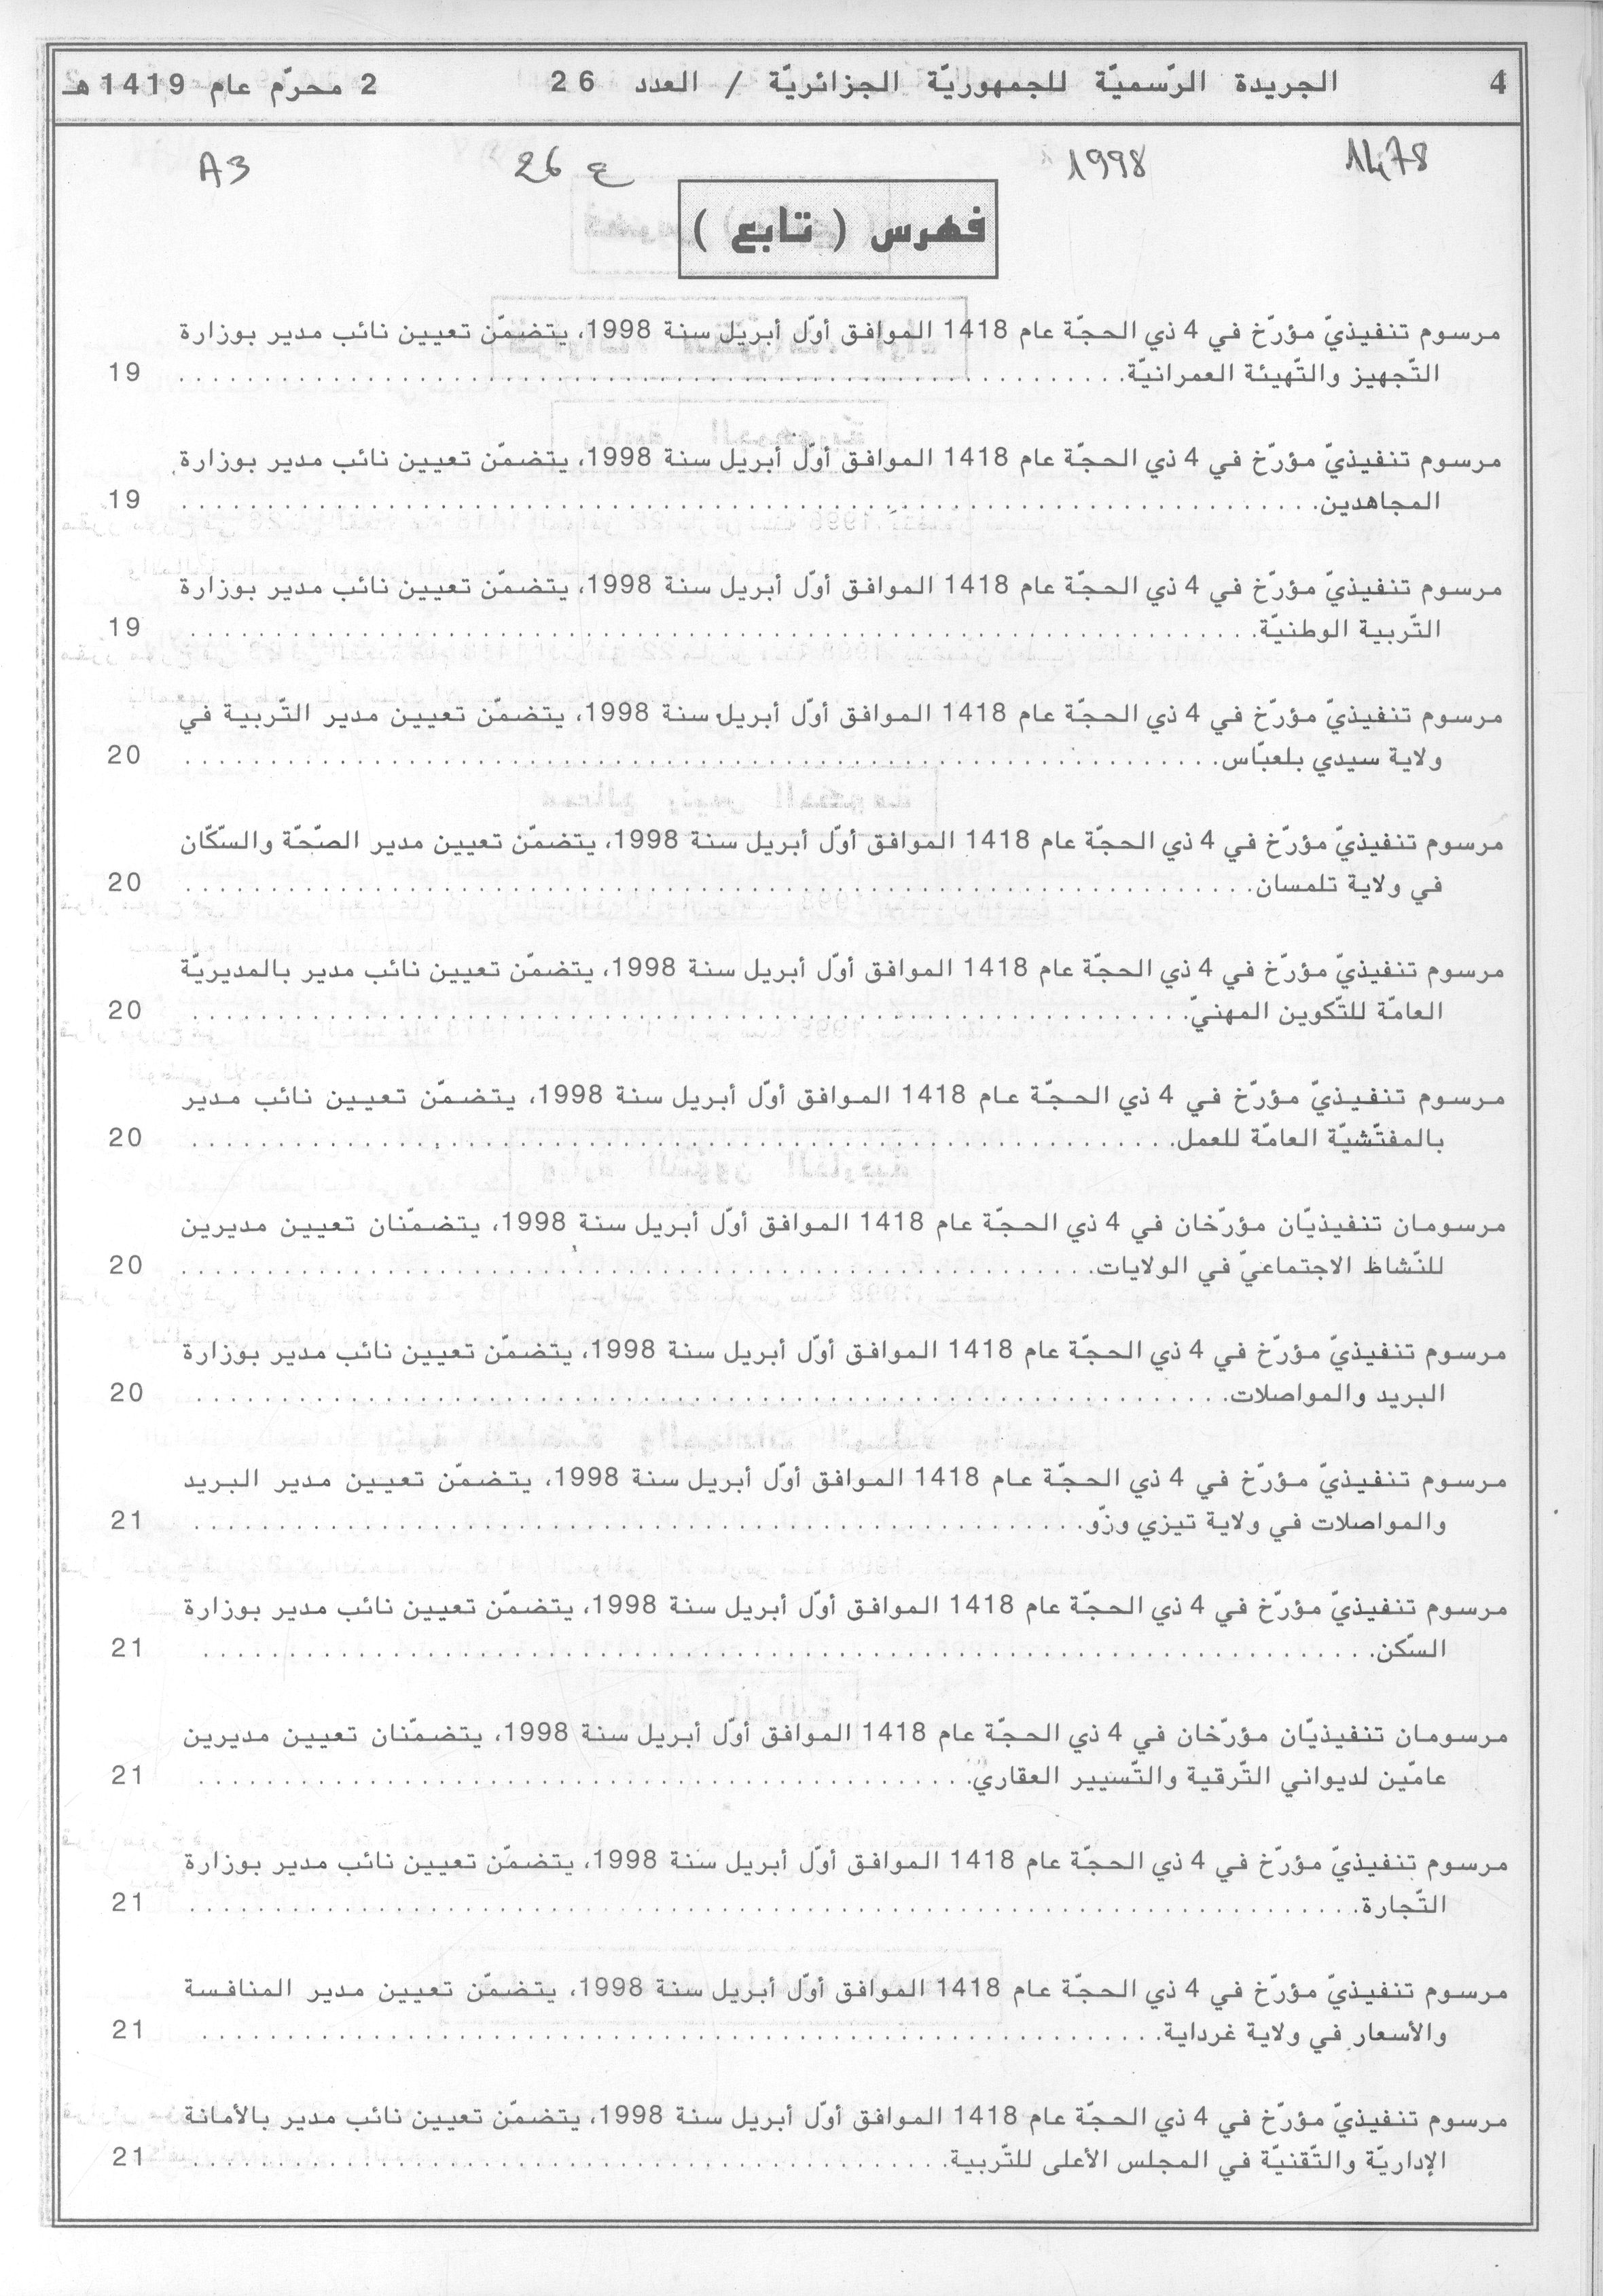 4 الجريدة الرّسميّة للجمهوريّة الجزائريّة / العدد 26 2 محرّم عام 1419 هـ
1478 1998 ع 26 A3
فهرس ( تابع )
مرسوم تنفيذيّ مؤرّخ في 4 ذي الحجّة عام 1418 الموافق أوّل أبريل سنة 1998، يتضمّن تعيين نائب مدير بوزارة
التّجهيز والتّهيئة العمرانيّة. . . . . . . . . . 19
مرسوم تنفيذيّ مؤرّخ في 4 ذي الحجّة عام 1418 الموافق أوّل أبريل سنة 1998، يتضمّن تعيين نائب مدير بوزارة
المجاهدين. . . . . . . . . . 19
مرسوم تنفيذيّ مؤرّخ في 4 ذي الحجّة عام 1418 الموافق أوّل أبريل سنة 1998، يتضمّن تعيين نائب مدير بوزارة
التّربية الوطنيّة. . . . . . . . . . 19
مرسوم تنفيذيّ مؤرّخ في 4 ذي الحجّة عام 1418 الموافق أوّل أبريل سنة 1998، يتضمّن تعيين مدير التّربية في
ولاية سيدي بلعبّاس. . . . . . . . . . 20
مرسوم تنفيذيّ مؤرّخ في 4 ذي الحجّة عام 1418 الموافق أوّل أبريل سنة 1998، يتضمّن تعيين مدير الصّحّة والسكّان
في ولاية تلمسان. . . . . . . . . . 20
مرسوم تنفيذيّ مؤرّخ في 4 ذي الحجّة عام 1418 الموافق أوّل أبريل سنة 1998، يتضمّن تعيين نائب مدير بالمديريّة
العامّة للتّكوين المهنيّ. . . . . . . . . . 20
مرسوم تنفيذيّ مؤرّخ في 4 ذي الحجّة عام 1418 الموافق أوّل أبريل سنة 1998، يتضمّن تعيين نائب مدير
بالمفتّشيّة العامّة للعمل. . . . . . . . . . 20
مرسومان تنفيذيّان مؤرّخان في 4 ذي الحجّة عام 1418 الموافق أوّل أبريل سنة 1998، يتضمّنان تعيين مديرين
للنّشاظ الاجتماعيّ في الولايات. . . . . . . . . . 20
مرسوم تنفيذيّ مؤرّخ في 4 ذي الحجّة عام 1418 الموافق أوّل أبريل سنة 1998، يتضمّن تعيين نائب مدير بوزارة
البريد والمواصلات. . . . . . . . . . 20
مرسوم تنفيذيّ مؤرّخ في 4 ذي الحجّة عام 1418 الموافق أوّل أبريل سنة 1998، يتضمّن تعيين مدير البريد
والمواصلات في ولاية تيزي وزّو. . . . . . . . . . 21
مرسوم تنفيذيّ مؤرّخ في 4 ذي الحجّة عام 1418 الموافق أوّل أبريل سنة 1998، يتضمّن تعيين نائب مدير بوزارة
السّكن. . . . . . . . . . 21
مرسومان تنفيذيّان مؤرّخان في 4 ذي الحجّة عام 1418 الموافق أوّل أبريل سنة 1998، يتضمّنان تعيين مديرين
عامّين لديواني التّرقية والتّسيير العقاريّ. . . . . . . . . . 21
مرسوم تنفيذيّ مؤرّخ في 4 ذي الحجّة عام 1418 الموافق أوّل أبريل سنة 1998، يتضمّن تعيين نائب مدير بوزارة
التّجارة. . . . . . . . . . 21
مرسوم تنفيذيّ مؤرّخ في 4 ذي الحجّة عام 1418 الموافق أوّل أبريل سنة 1998، يتضمّن تعيين مدير المنافسة
والأسعار في ولاية غرداية. . . . . . . . . . 21
مرسوم تنفيذيّ مؤرّخ في 4 ذي الحجّة عام 1418 الموافق أوّل أبريل سنة 1998، يتضمّن تعيين نائب مدير بالأمانة
الإداريّة والتّقنيّة في المجلس الأعلى للتّربية. . . . . . . . . . 21